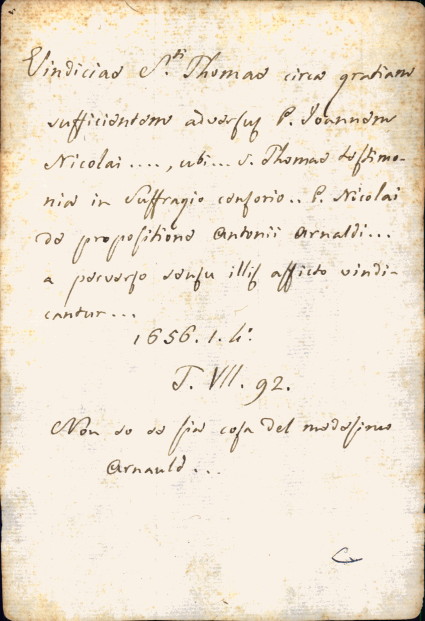 Vindiciae S.ti Thomae circa gratiam
sufficientem adversus P. Joannem
Nicolai ...., ubi... S. Thomae testimo-
nia in Suffragio censorio.. P. Nicolai
de propositione Antonii Arnaldi...
a perverso sensu illis afficto vindi-
cantur...
1656. 1. 4°.
T. VII. 92.
Non so se sia cosa del medesimo
Arnauld...